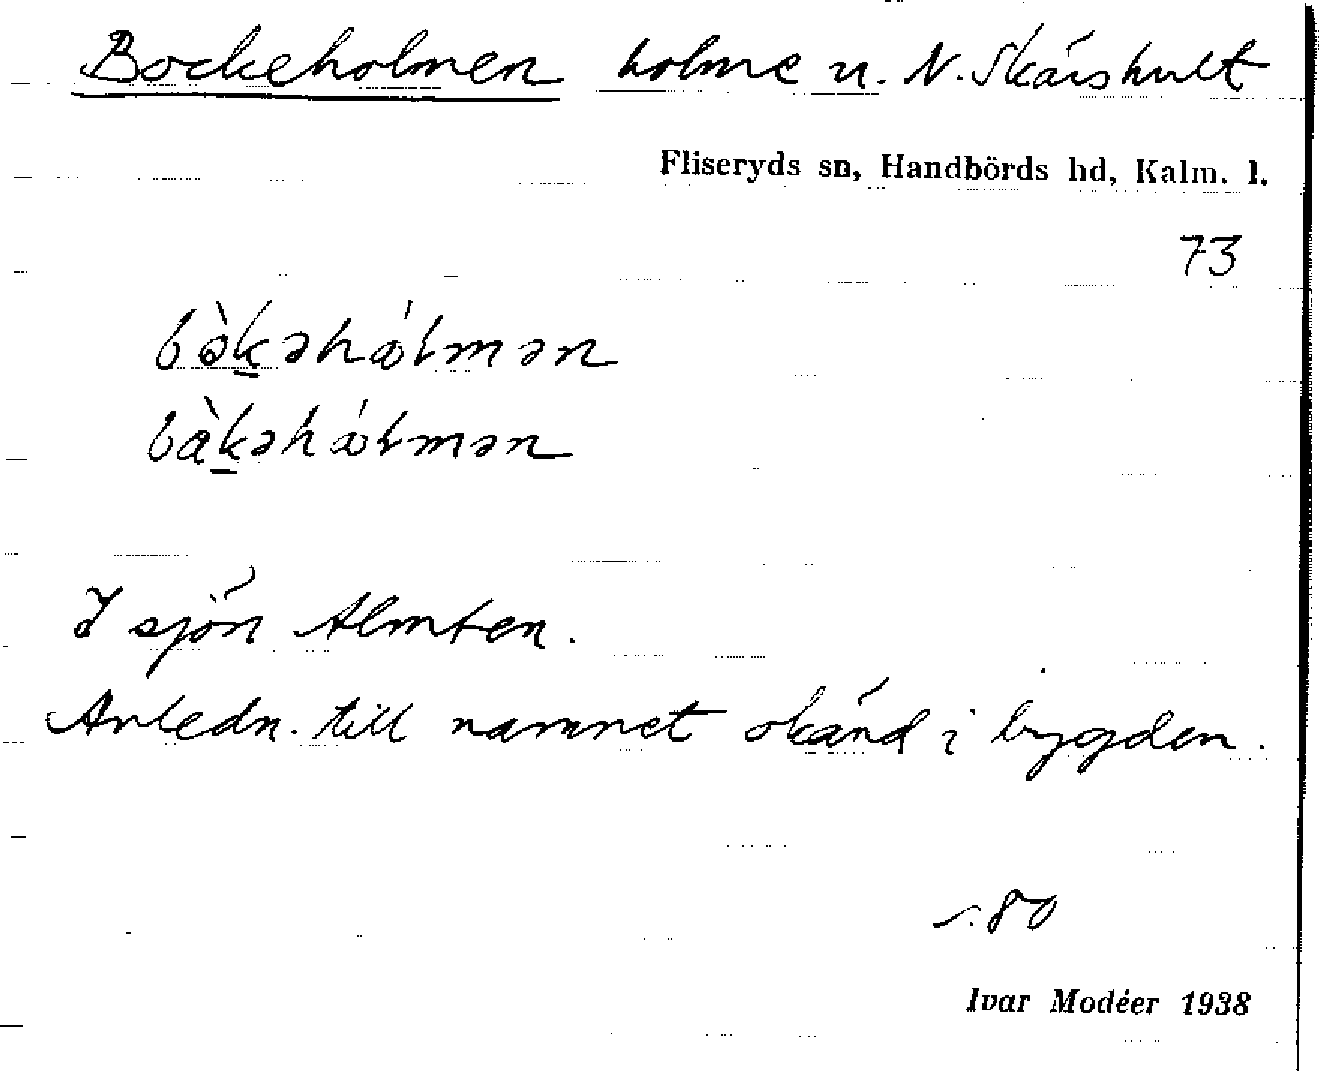 Bockeholmen holme u. N. Skärshult
Fliseryds sn, Handbörds hd, Kalm. l.
73
bòḵəhólmən
bàḵəhólmən
I sjön Almten.
Anledn. till namnet okänd i bygden.
s. 80
Ivar Modéer 1938